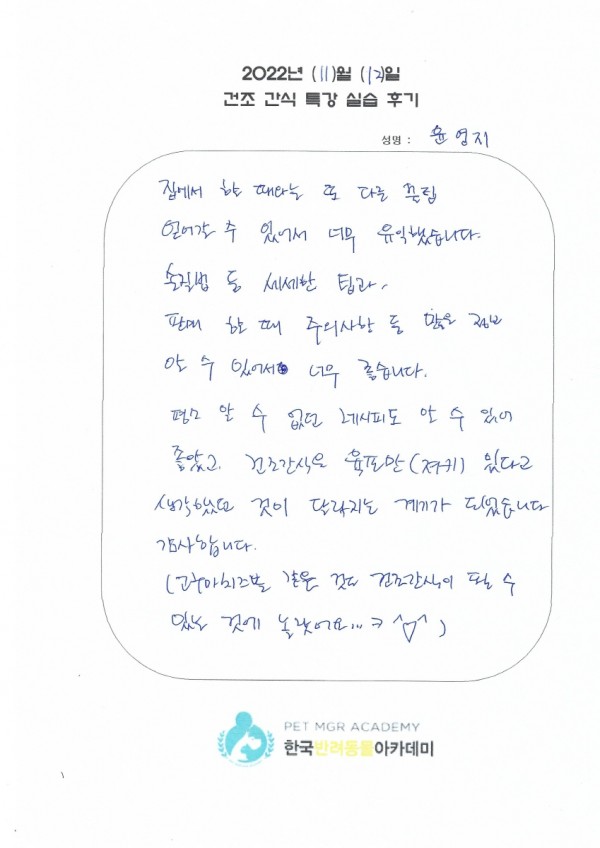 2022년 (11)월 (12)일
건조 간식 특강 실습 후기
성명 : 윤영지
집에서 할 때와는 또 다른 꿀팁
얻어갈 수 있어서 너무 유익했습니다.
손질법 등 세세한 팁과,
판매 할 때 주의사항 등 많은 정보
알 수 있어서 너무 좋습니다.
평소 알 수 없던 레시피도 알 수 있어
좋았고, 건조간식은 육포만(져키) 있다고
생각했던 것이 달라지는 계기가 되었습니다
감사합니다.
(고구마치즈볼 같은 것도 건조간식이 될 수
있는 것에 놀랐어요...ㅋ ^♡^)
PET MGR ACADEMY
한국반려동물아카데미